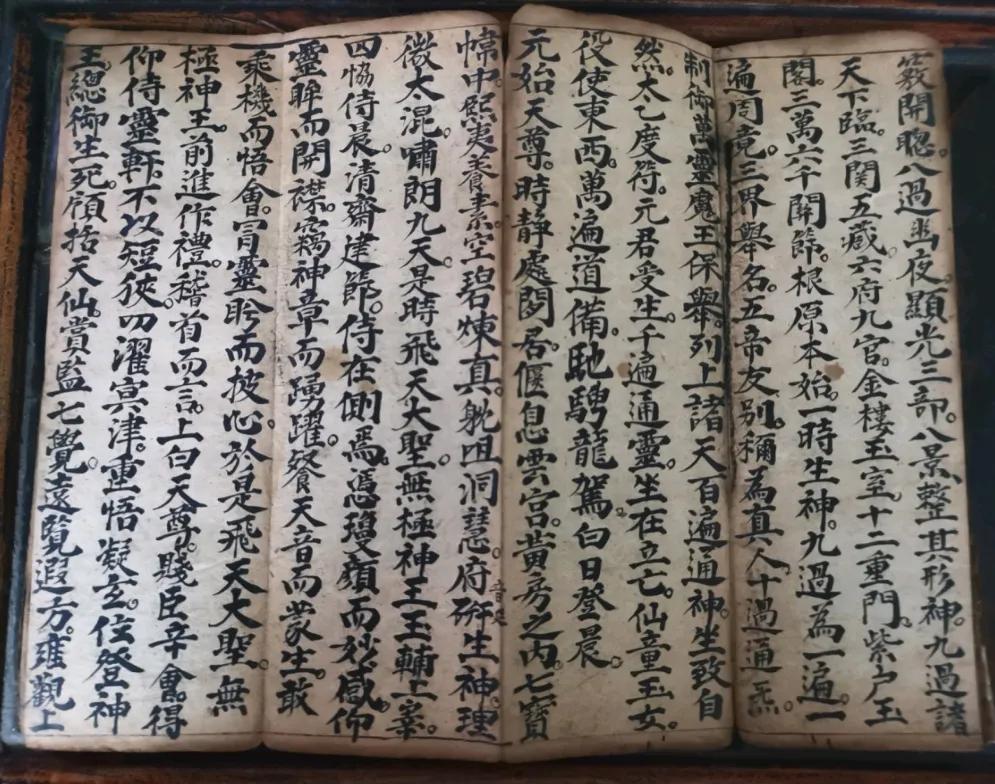 籔開聰。八過幽夜。顯光三部。八景整其形神。九過諸
天下臨。三関五蔵。六府九宫。金樓玉室。十二重門。紫户玉
閣。三萬六千關節。根原本始。一時生神。九過為一遍。一
遍周竟。三界舉名。五帝友别。稱為真人。十過通炁。
制御萬靈。魔王保舉。列上諸天。百遍通神。坐致自
然。太乙度符。元君受生。千遍通靈。坐在立亡。仙童玉女。
役使東西。萬遍道備。馳騁龍駕。白日登晨。
元始天尊。時静處閑居。偃息雲宫。黄房之内。七寶
幃中。熙夷養素。空碧煉真。躭咀洞慧。府硏生神。理
微太混。嘯朗九天。是時飛天大聖。無極神王。玉輔上宰。
四協侍晨。清齋建節。侍在側焉。慿瓊顔而妙感。仰
靈眸而開襟。竊神章而踴躍。飡天音而蒙生。敢
乘機而悟會。冒靈眄而披心。於是飛天大聖。無
極神王。前進作禮。稽首而言。上白天尊。賤臣幸會。得
仰侍靈軒。不以短狹。叨濯冥津。重悟凝玄。位登神
王。總御生死。領括天仙。賞監七覺。遠覽遐方。雍觀上